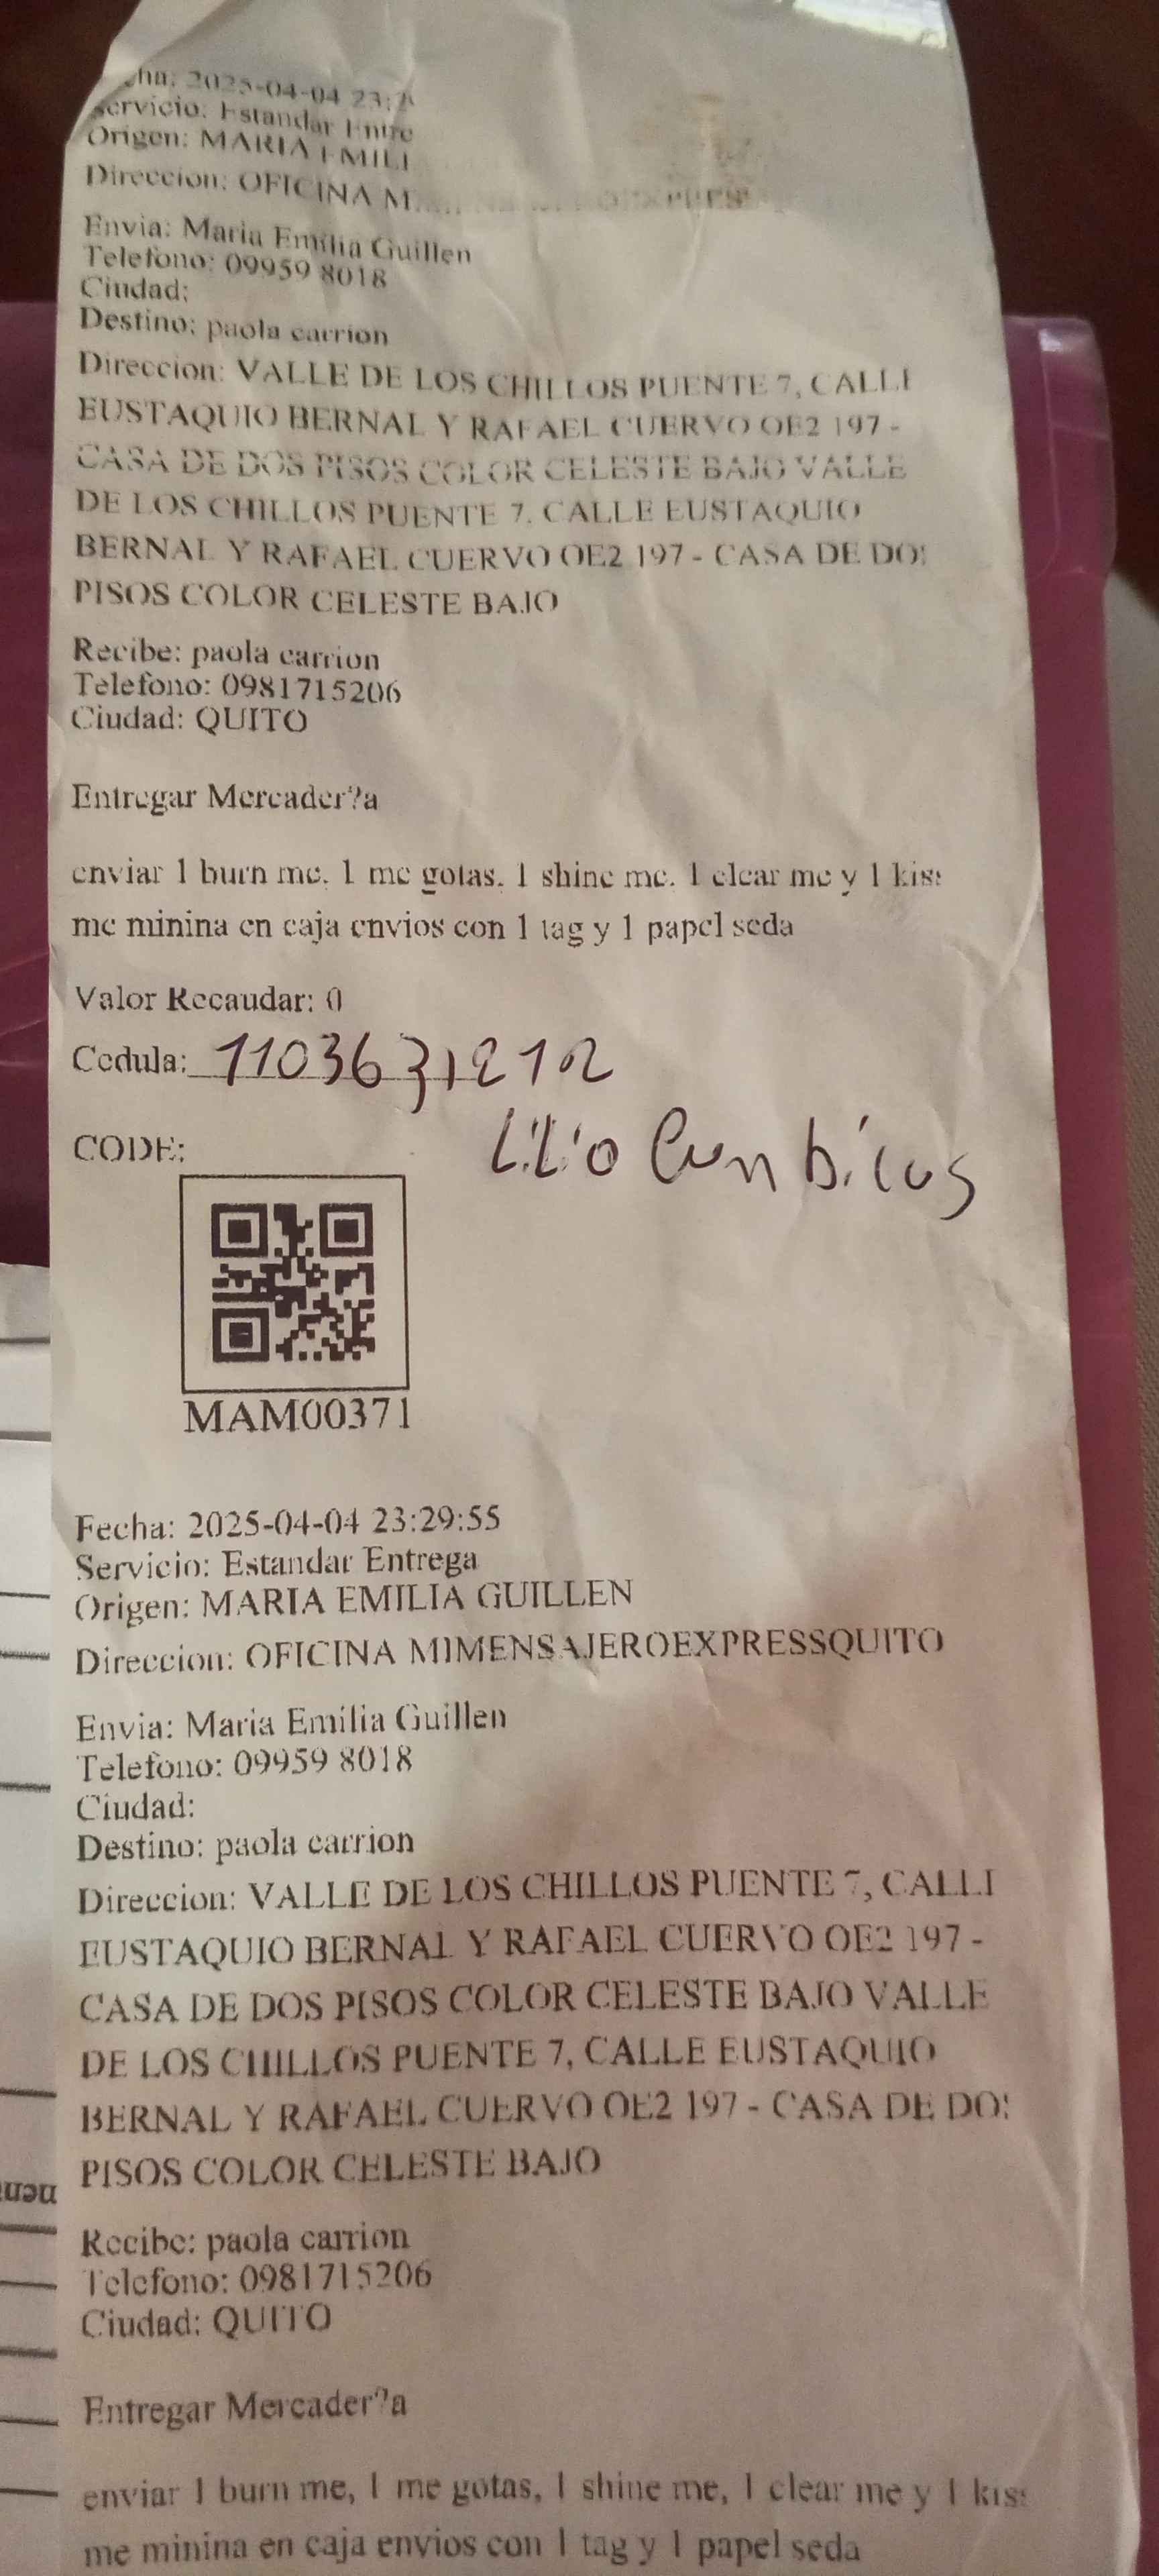 2025-04-04 23:2
Servicio: Estandar Entre
Origen: MARIA EMILI
Direccion: OFICINA M
Envia: Maria Emilia Guillen
Telefono: 09959 8018
Ciudad:
Destino: paola carrion
Direccion: VALLE DE LOS CHILLOS PUENTE 7, CALLE
EUSTAQUIO BERNAL Y RAFAEL CUERVO OE2 197 -
CASA DE DOS PISOS COLOR CELESTE BAJO VALLE
DE LOS CHILLOS PUENTE 7, CALLE EUSTAQUIO
BERNAL Y RAFAEL CUERVO OE2 197 - CASA DE DOS
PISOS COLOR CELESTE BAJO
Recibe: paola carrion
Telefono: 0981715206
Ciudad: QUITO
Entregar Mercader?a
enviar 1 burn me, 1 me gotas, 1 shine me, 1 clear me y 1 kiss
me minina en caja envios con 1 tag y 1 papel seda
Valor Recaudar: 0
Cedula:
CODE:
MAM00371
Fecha: 2025-04-04 23:29:55
Servicio: Estandar Entrega
Origen: MARIA EMILIA GUILLEN
Direccion: OFICINA MIMENSAJEROEXPRESSQUITO
Envia: Maria Emilia Guillen
Telefono: 09959 8018
Ciudad:
Destino: paola carrion
Direccion: VALLE DE LOS CHILLOS PUENTE 7, CALLE
EUSTAQUIO BERNAL Y RAFAEL CUERVO OE2 197 -
CASA DE DOS PISOS COLOR CELESTE BAJO VALLE
DE LOS CHILLOS PUENTE 7, CALLE EUSTAQUIO
BERNAL Y RAFAEL CUERVO OE2 197 - CASA DE DOS
PISOS COLOR CELESTE BAJO
Recibe: paola carrion
Telefono: 0981715206
Ciudad: QUITO
Entregar Mercader?a
enviar 1 burn me, 1 me gotas, 1 shine me, 1 clear me y 1 kiss
me minina en caja envios con 1 tag y 1 papel seda